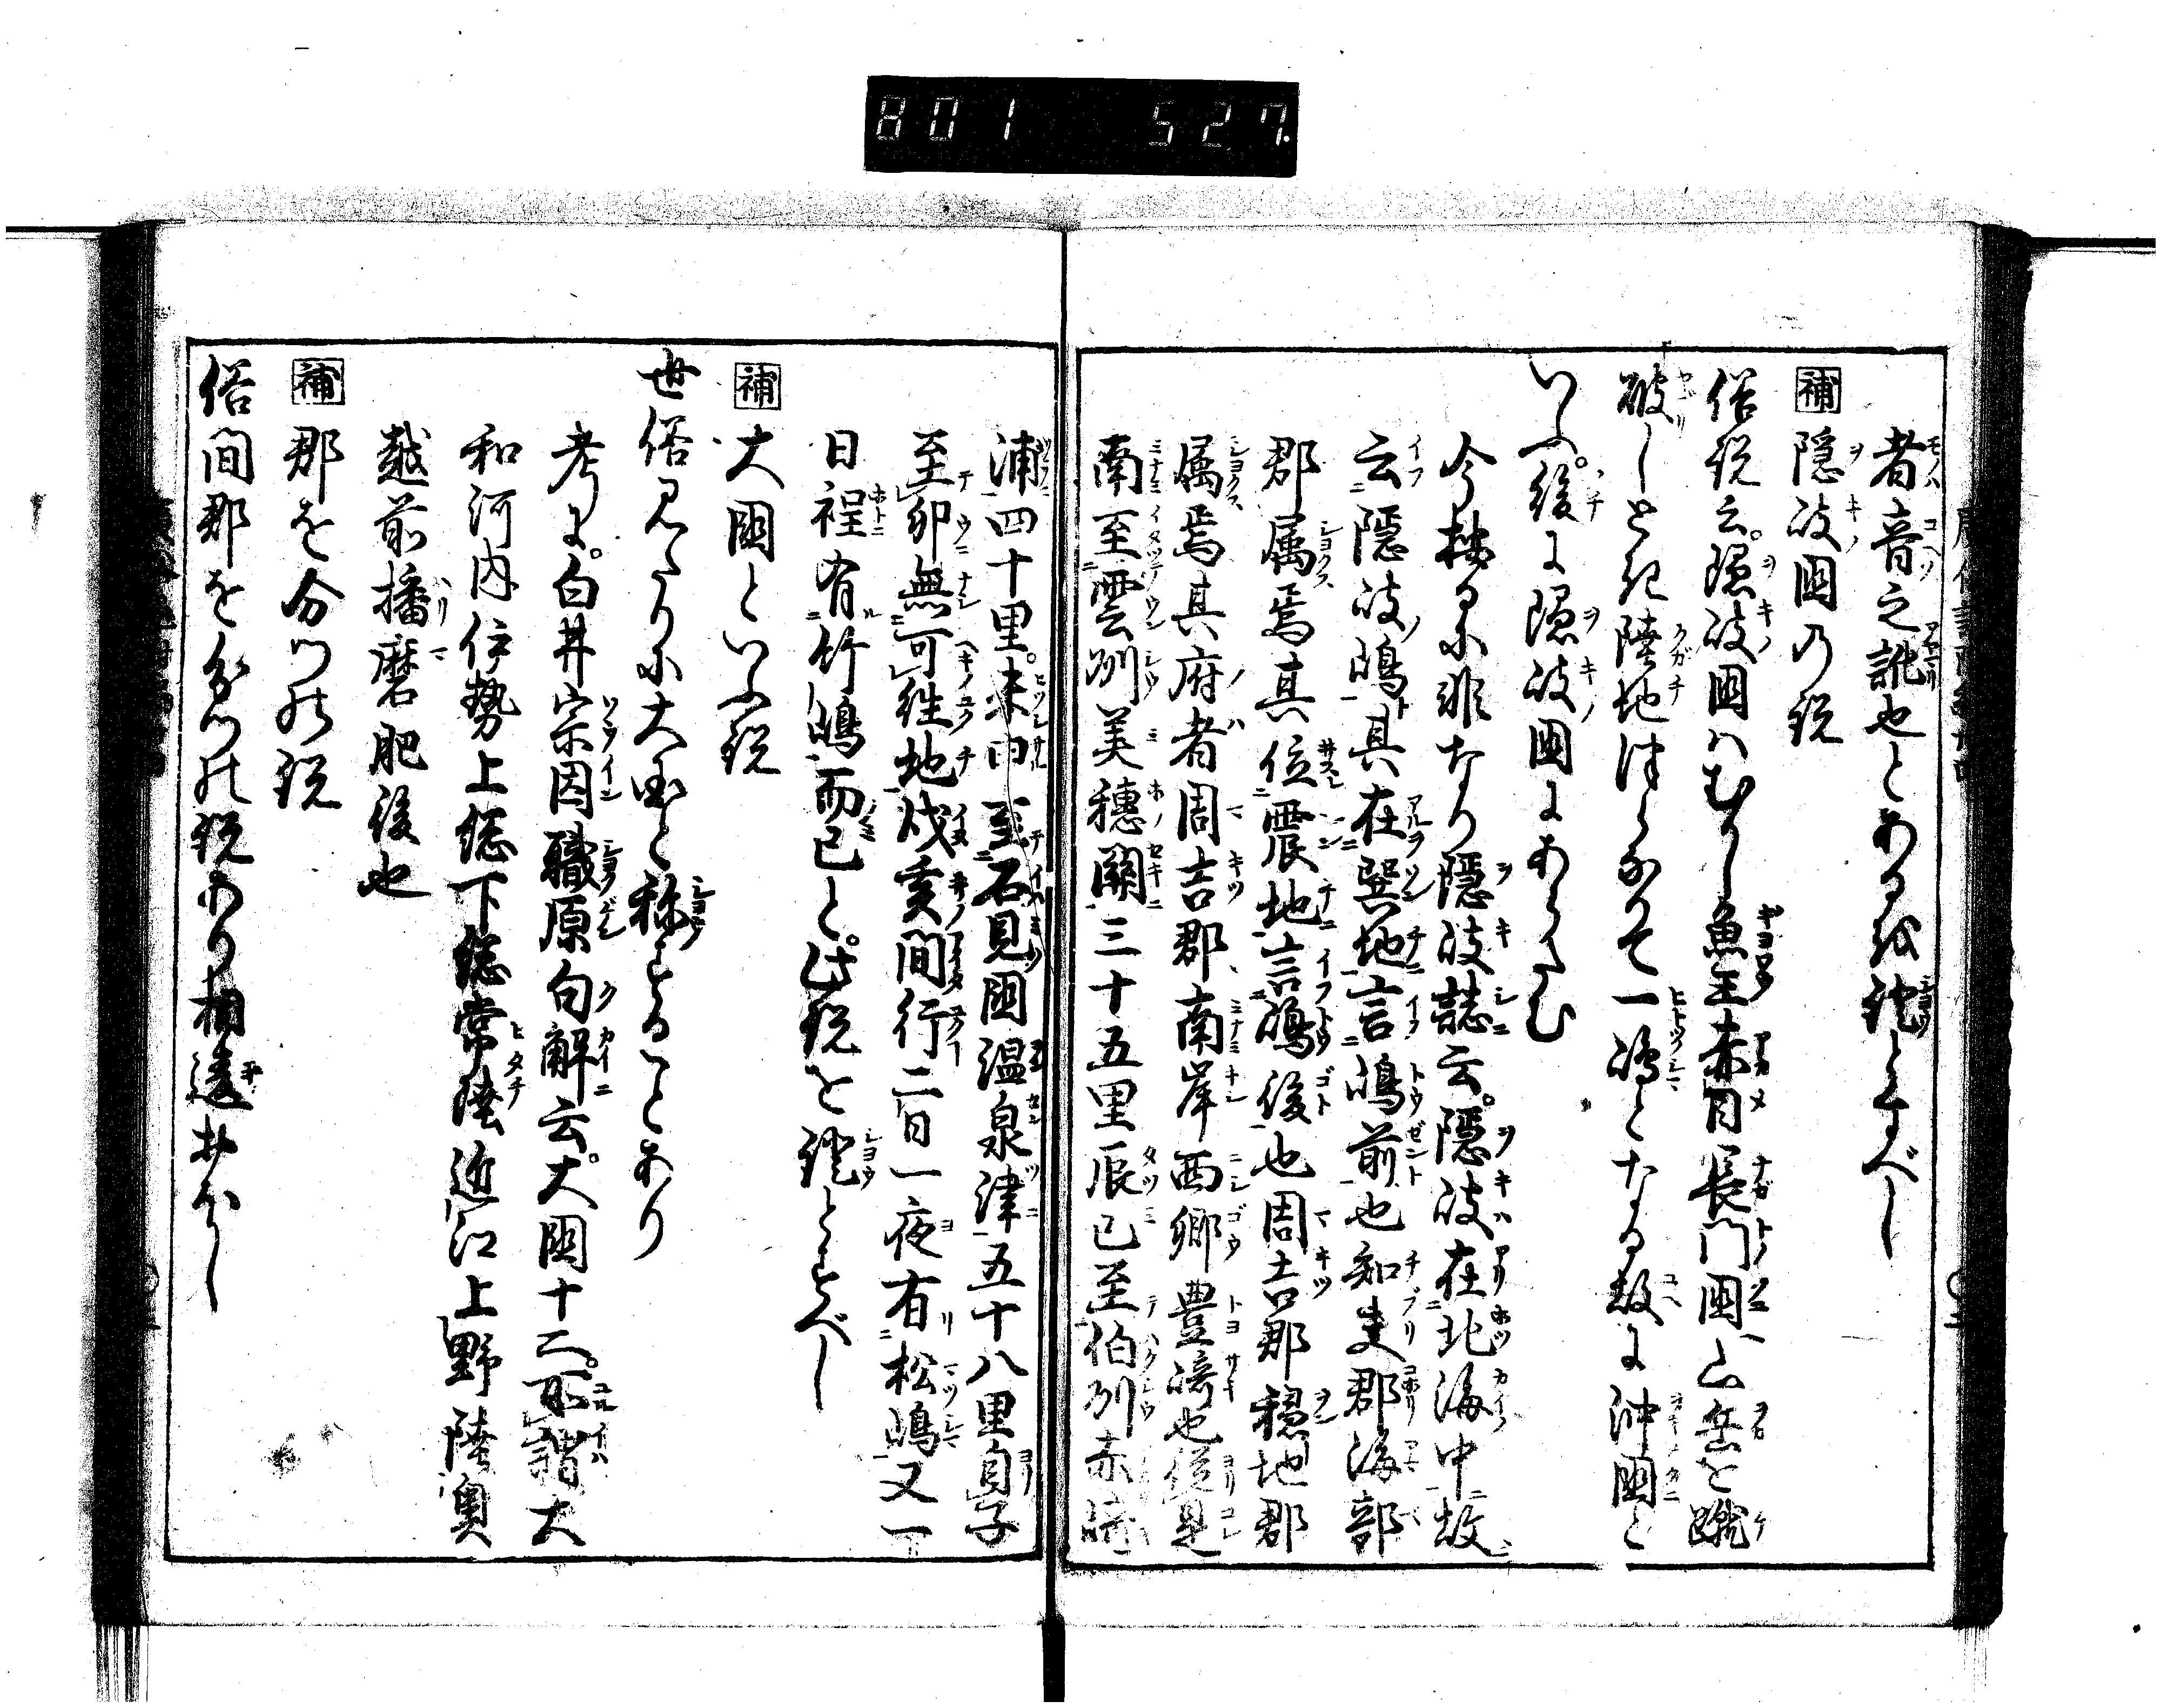 801 527
者音之訛也とあるを證とすべし
補 隠岐国の説
俗説云。隠岐国ハむかし魚王赤目長門国の山岳を蹴
破しとき陸地つらなりて一嶋となる故に沖国と
いふ。後に隠岐国にあらたむ
今按るに非なり隠岐誌云。隠岐在北海中故
云隠岐嶋其在巽地言嶋前也知夫郡海部
郡属焉其位震地言嶋後也周吉郡穏地郡
属焉其府者周吉郡南岸西郷豊崎也従是
南至雲州美穂関三十五里辰巳至伯州赤碕
浦四十里。未申至石見国温泉津五十八里自子
至卯無可往地戌亥間行二日一夜有松嶋又一
日程有竹嶋而已と。此説を證とすべし
補 大国といふ説
世俗みだりに大国と称することあり
考に。白井宗因職原句解云。大国十二。所謂大
和河内伊勢上総下総常陸近江上野陸奥
越前播磨肥後也
補 郡を分つの説
俗間郡を分つの説あり相違おほし